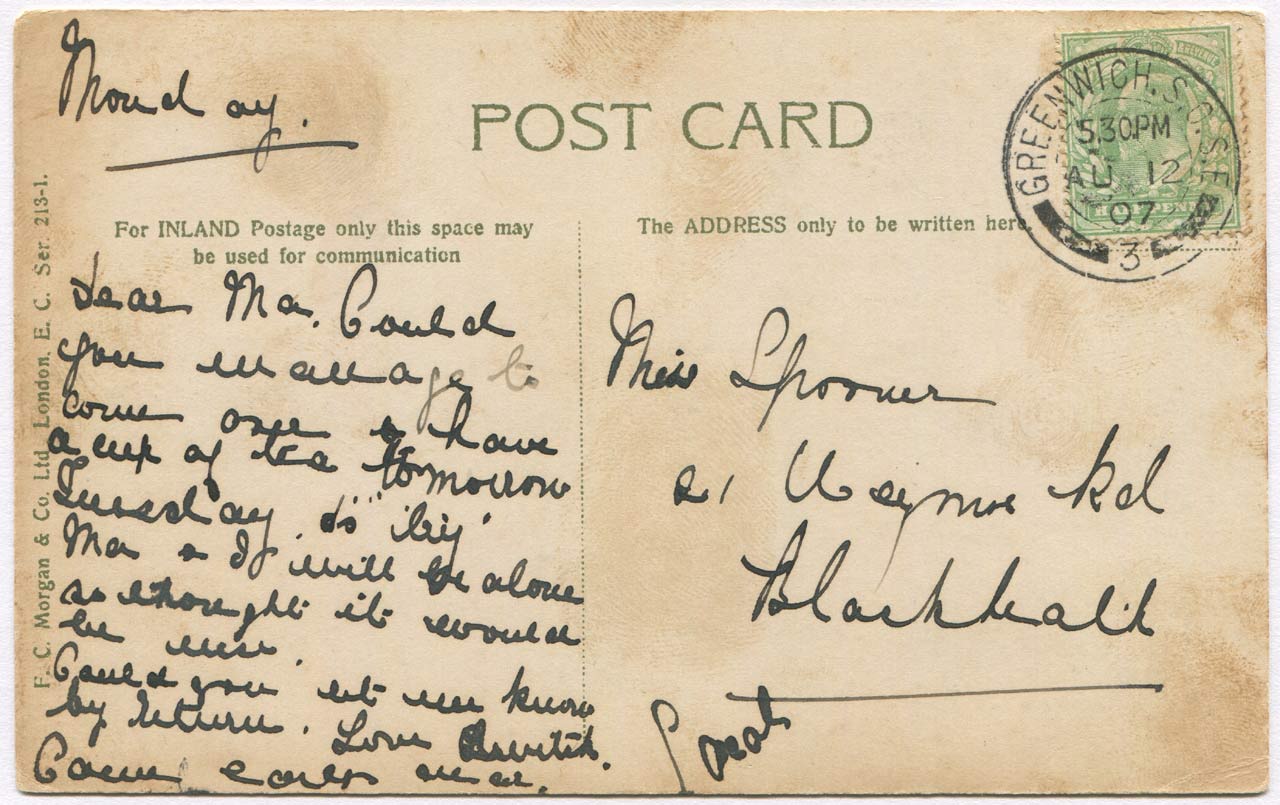 Monday.
POST CARD
GREENWICH. S.O. S.E
5.30PM
AU 12
07
3
For INLAND Postage only this space may
be used for communication
The ADDRESS only to be written here.
F. C. Morgan & Co. Ltd. London, E. C. Ser. 213-1.
Dear Ma. Could
you manage to
come over & have
a cup of tea tomorrow
Tuesday. as
Ma & I will be alone
so thought it would
be nice.
Could you let me know
by return. Love
Come early
Miss Spooner
21 Rd
Blackheath